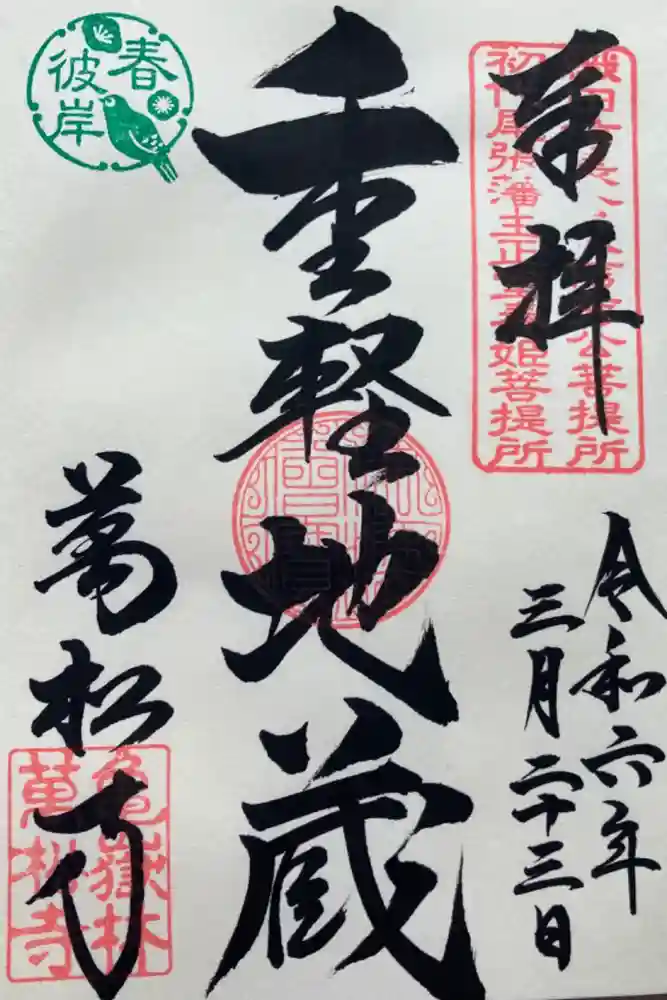 奉拝
初代尾張藩主正室春姫菩提所
令和六年
三月二十三日
重軽地蔵
春
彼岸
萬松寺
亀嶽林
萬松寺